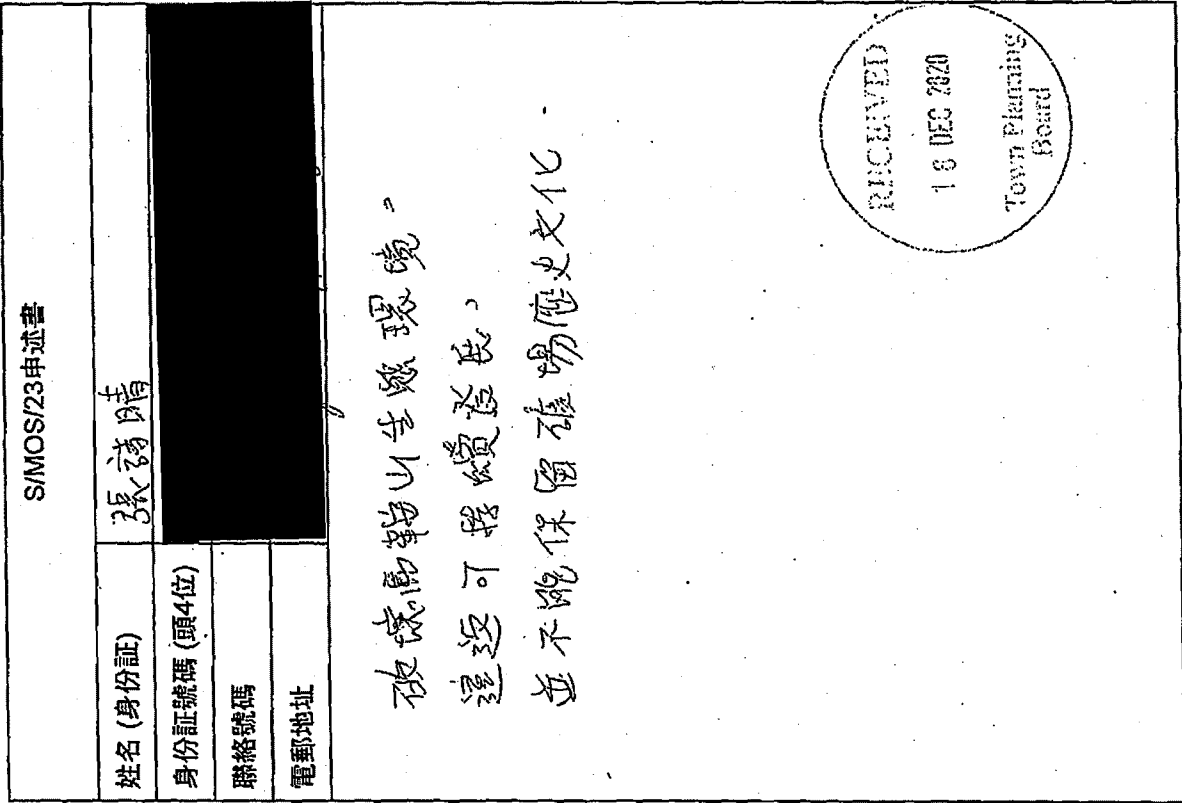 S/MOS/23申述書
姓名 (身份証)
張詩晴
身份証號碼 (頭4位)
聯絡號碼
電郵地址
破壞馬鞍山生態環境。
違返可持續發展。
並不能保留礦場歷史文化.
RECEIVED
16 DEC 2020
Town Planning
Board